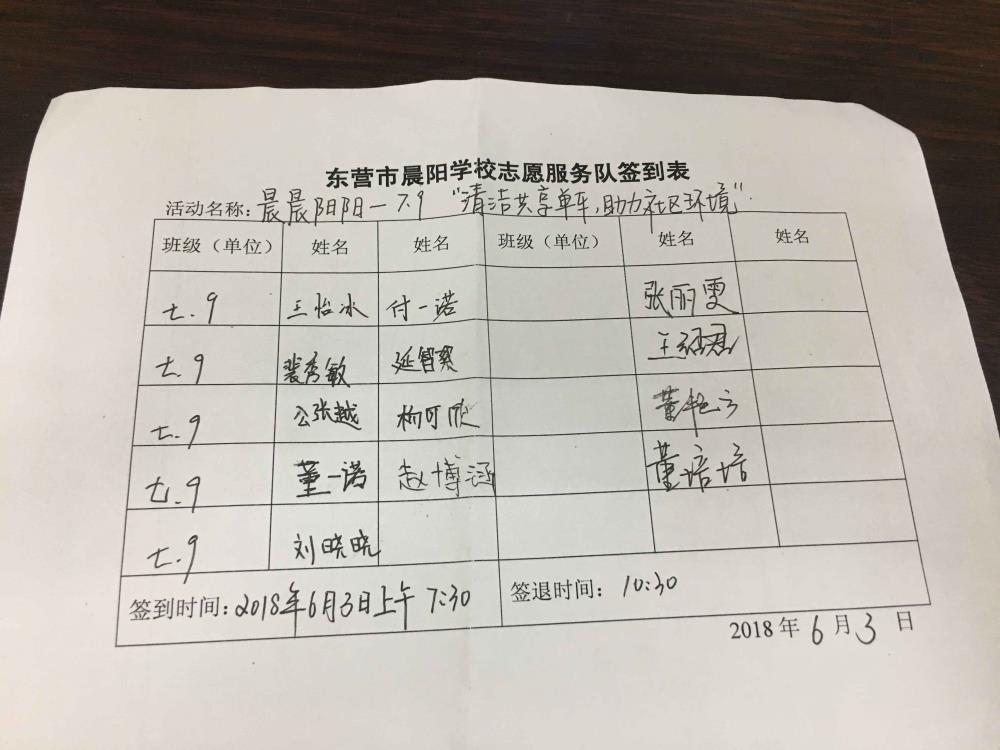 东营市晨阳学校志愿服务队签到表
活动名称：晨晨阳阳一7.9 "清洁共享单车，助力社区环境"
班级（单位） 姓名 姓名 班级（单位） 姓名 姓名
七.9 王怡冰 付一诺 张丽雯
七.9 裴秀敏 延智
七.9 公张越 杨可欣 董
七.9 董一诺 赵博涵 董培培
七.9 刘晓晓
签到时间：2018年6月3日上午 7:30 签退时间： 10:30
2018 年 6 月 3 日